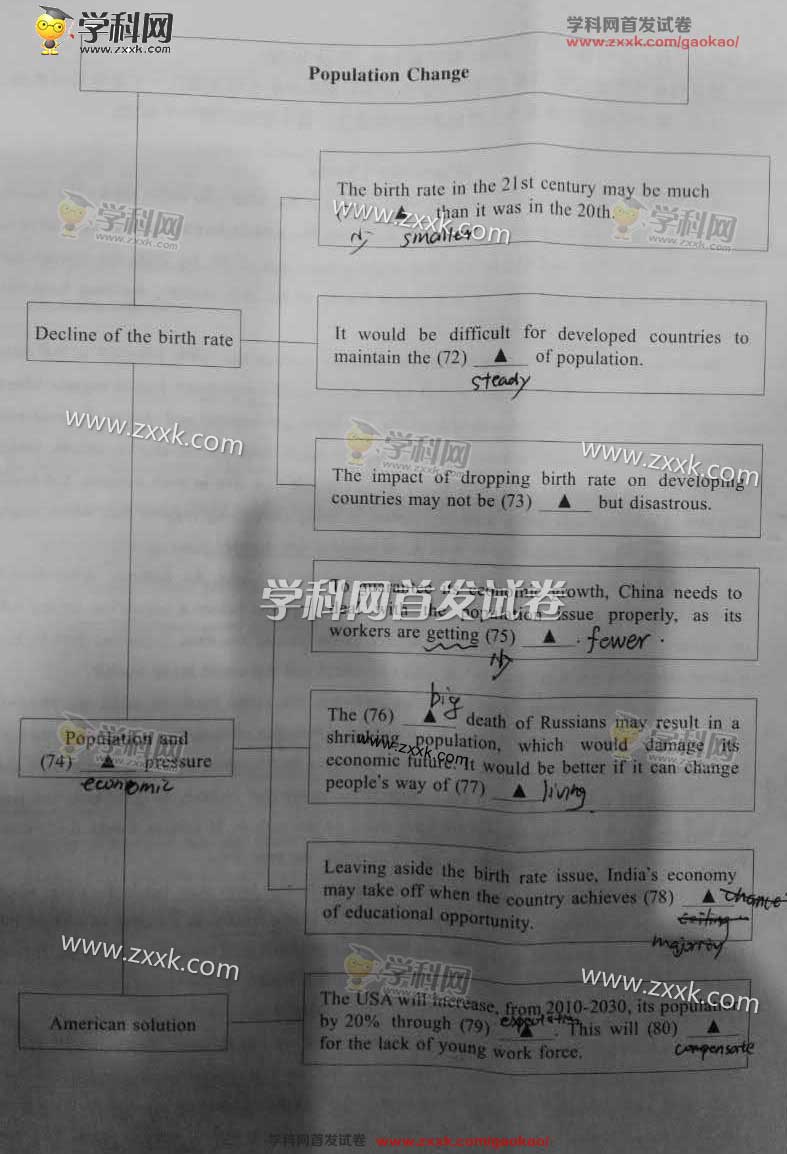 学科网
www.zxxk.com
学科网首发试卷
www.zxxk.com/gaokao/
Population Change
The birth rate in the 21st century may be much
▲ than it was in the 20th.
smaller
www.zxxk.com
学科网
zxxk.com
学科网
zxxk.com
Decline of the birth rate
It would be difficult for developed countries to
maintain the (72) ▲ of population.
steady
www.zxxk.com
学科网
www.zxxk.com
www.zxxk.com
The impact of dropping birth rate on developing
countries may not be (73) ▲ but disastrous.
学科网首发试卷
To guarantee its economic growth, China needs to
the population issue properly, as its
workers are getting (75) ▲ . fewer .
big
The (76) ▲ death of Russians may result in a
shrinking population, which would damage its
economic future. It would be better if it can change
people's way of (77) ▲ living
www.zxxk.com
Population and
(74) ▲ pressure
economic
Leaving aside the birth rate issue, India's economy
may take off when the country achieves (78) ▲ chance
of educational opportunity.
ceiling
majority
www.zxxk.com
学科网
www.zxxk.com
www.zxxk.com
American solution
The USA will increase, from 2010-2030, its population
by 20% through (79) ▲ . This will (80) ▲
for the lack of young work force.
compensate
学科网首发试卷 www.zxxk.com/gaokao/